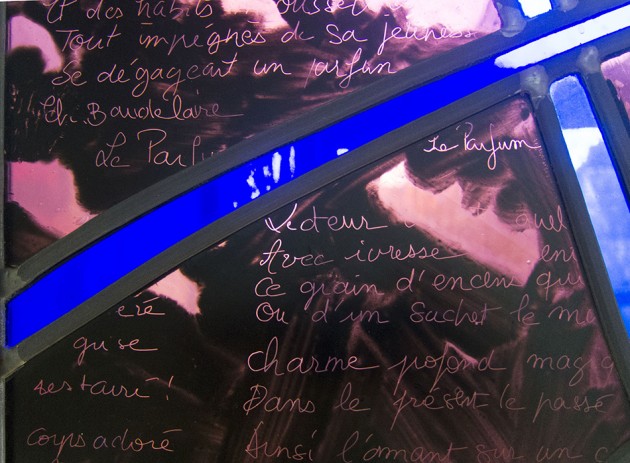 des habits
Tout impégnés de Sa jeunesse
Se dégageait un parfum
Ch. Baudelaire
Le Parfu
Le Parfum
Lecteur quel
Avec ivresse
Ce grain d'encens qui
Ou d'un sachet le mu
charme pofond magiq
Dans le présent le passé
Ainsi l'amant sur un c
éré
qui se
restauré !
corps adoré